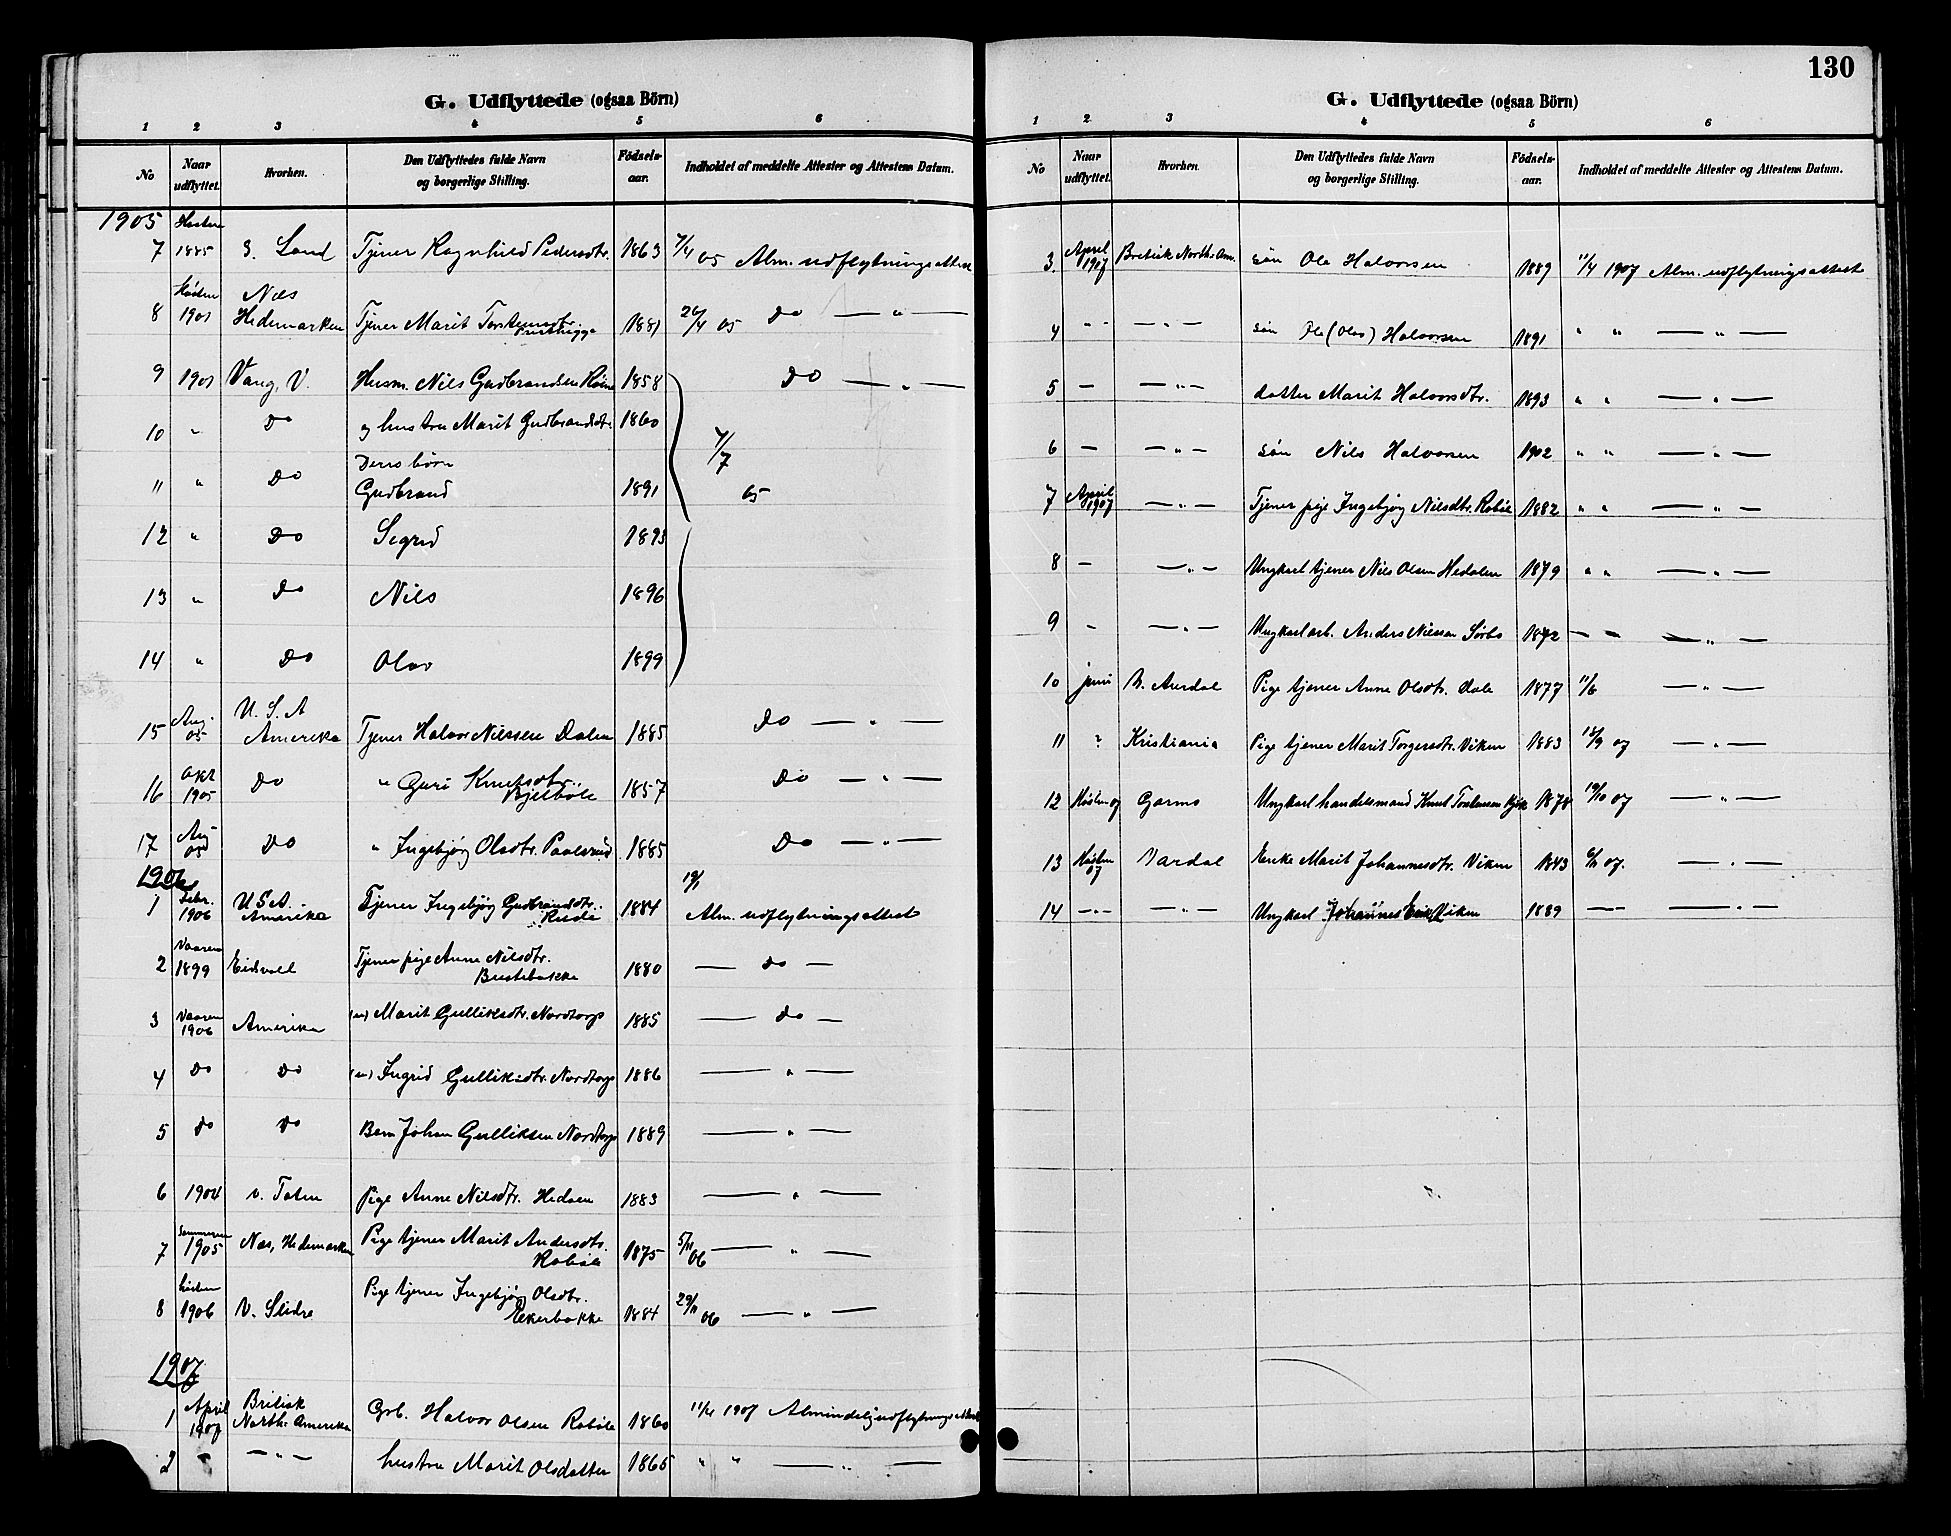 130
G. Udflyttede (ogsaa Börn)
1 2 3 4 5 6
No Naar udflyttet. Hvorhen. Den Udflyttedes fulde Navn og borgerlige Stilling. Fødselsaar. Indholdet af meddelte Attester og Attestens Datum.
1905
7 Høsten 1885 S. Land Tjener Ragnhild Pedersdtr. 1863 7/4 05 Alm. udflytningsattest
8 Høsten 1901 Næs Hedemarken Tjener Marit Torstensdtr. 1881 26/4 05 Do — „ —
9 1901 Vang, V. Husm. Nils Gudbrandsen 1858 Do — „ —
10 „ Do og hustru Marit Gudbrandsdtr. 1860
Deres børn
11 „ Do Gudbrand 1891 7/7 05
12 „ Do Sigrid 1893
13 „ Do Nils 1896
14 „ Do Olav 1899
15 Aug. 05 U. S. A Amerika Tjener Halvor Nilssen Dalen 1885 Do — „ —
16 Okt 1905 Do „ Guri Knutsdtr. Bjelbøle 1857 Do — „ —
17 Aug 05 Do „ Ingebjørg Olsdtr. Paalsrud 1885 Do — „ —
1906
1 Febr. 1906 U.S.A. Amerika Tjener Ingebjørg Gudbrandsdtr. 1884 19/1 Alm. udflytningsattest
2 Vaaren 1899 Eidsvold Tjenerpige Anne Nilsdtr. Bustebakke 1880 — Do —
3 Vaaren 1906 Amerika (u) Marit Gulliksdtr. Nordtorp 1885 — Do —
4 Do Do (u) Ingrid Gulliksdtr. Nordtorp 1886 — „ —
5 Do Do Barn Johan Gulliksen Nordtorp 1889 — „ —
6 1904 v. Toten Pige Anne Nilsdtr. Hedalen 1883 — „ —
7 Sommeren 1905 Næs, Hedemarken Pige tjener Marit Andersdtr. Robøle 1875 5/11 06 — „ —
8 Høsten 1906 V. Slidre Pige tjener Ingebjørg Olsdtr. Ekerbakke 1884 29/11 06 — „ —
1907
1 April 1907 Britisk North. Amerika Grb. Halvor Olsen Robøle 1860 11/4 1907 Almindelig udflytningsattest
2 „ — „ — hustru Marit Olsdatter 1865 „ „ — „ —
G. Udflyttede (ogsaa Börn)
1 2 3 4 5 6
No Naar udflyttet. Hvorhen. Den Udflyttedes fulde Navn og borgerlige Stilling. Fødselsaar. Indholdet af meddelte Attester og Attestens Datum.
3. April 1907 Britisk North. Am. søn Ole Halvorsen 1889 11/4 1907 Alm. udflytningsattest
4 „ „ — „ — søn Ole (Olav) Halvorsen 1891 „ „ — „ —
5 — — „ — datter Marit Halvorsdtr. 1893 „ „ — „ —
6 — — „ — søn Nils Halvorsen 1902 „ „ — „ —
7 April 1907 — „ — Tjener pige Ingebjørg Nilsdtr. Robøle 1882 „ „ — „ —
8 — — „ — Ungkarl tjener Nils Olsen Hedalen 1879 „ „ — „ —
9 - — „ — Ungkarl arb. Anders Nilssen Sørbø 1872 — — — „ —
10 juni N. Aurdal Pige tjener Anne Olsdtr. Dale 1877 11/6 — „ —
11 „ Kristiania Pige tjener Marit Torgersdtr. Viken 1883 18/9 07 — „ —
12 Høsten 07 Garmo Ungkarl handelsmand Knut Torstensen 1878 19/10 07 — „ —
13 Høsten 07 Vardal Enke Marit Johannesdtr. Viken 1843 6/11 07. — „ —
14 — „ — — „ — Ungkarl Johannes Viken 1889 — — — „ —